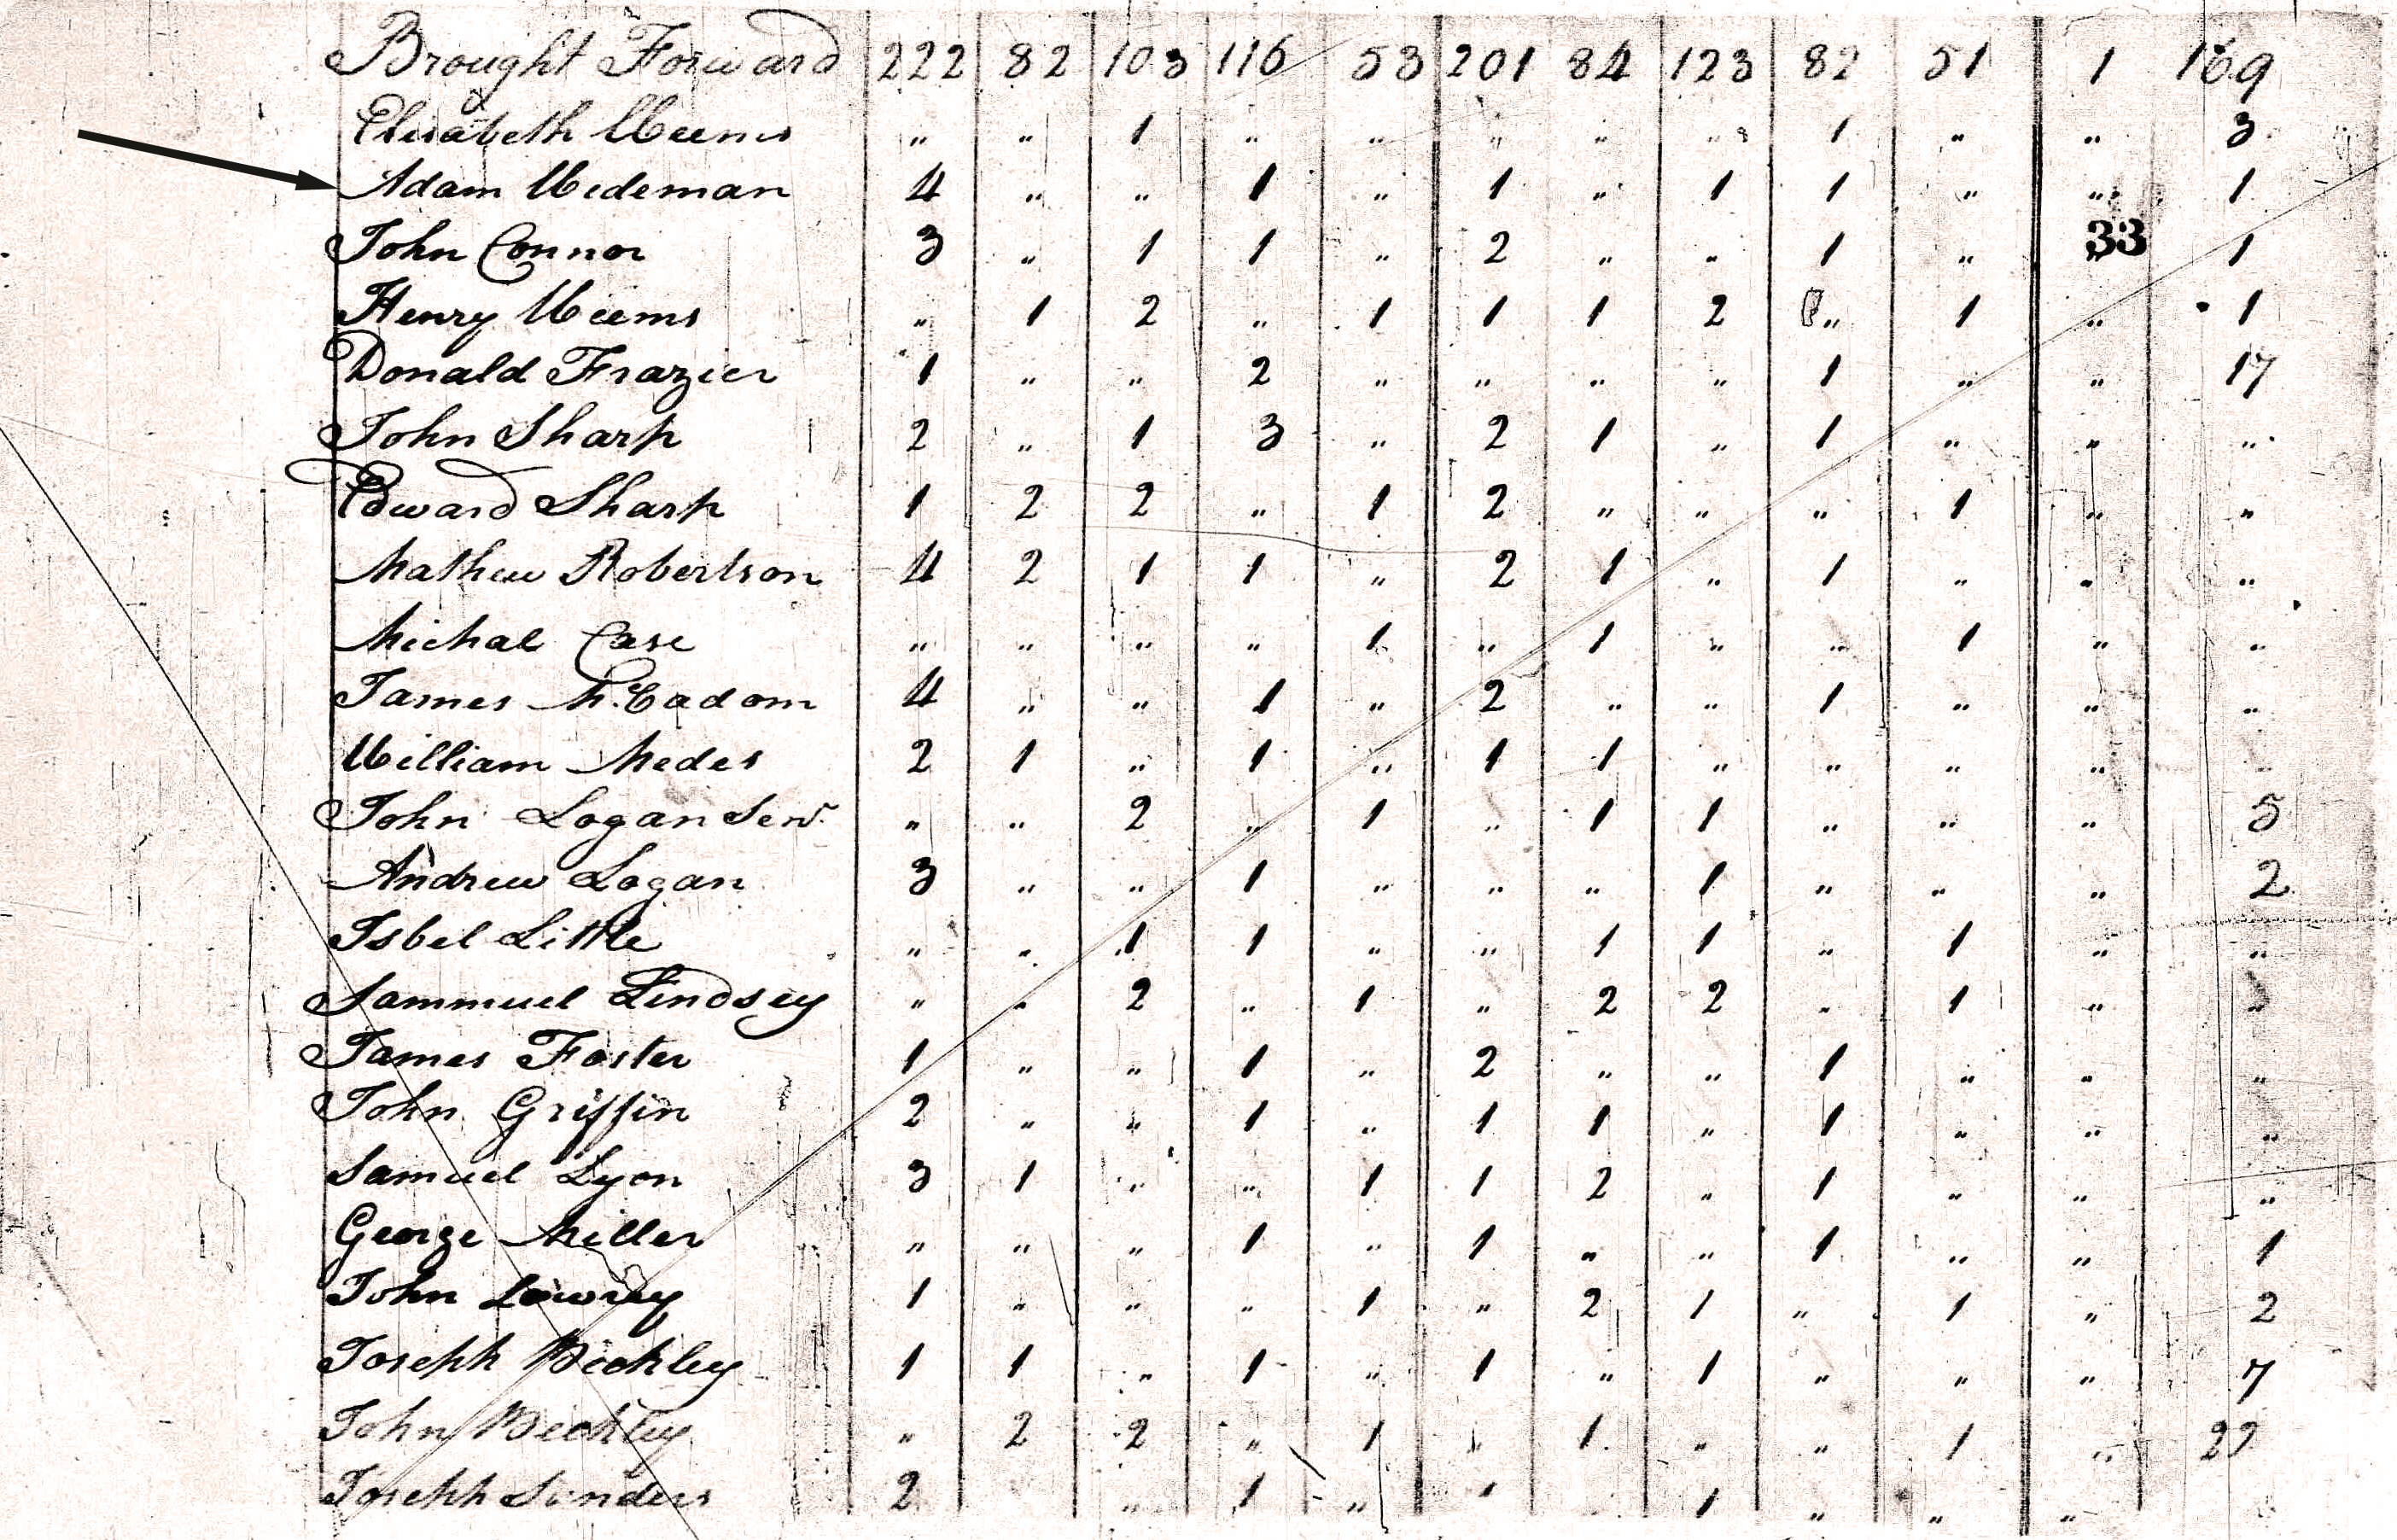 Brought Forward 222 82 103 116 53 201 84 123 82 51 1 169
Elisabeth Weems " " 1 " " " " " 1 " " 3
Adam Wedeman 4 " " 1 " 1 " 1 1 " " 1
33
John Connor 3 " 1 1 " 2 " " 1 " " 1
Henry Weems " 1 2 " 1 1 1 2 " 1 " 1
Donald Frazier 1 " " 2 " " " " 1 " " 17
John Sharp 2 " 1 3 " 2 1 " 1 " " "
Edward Sharp 1 2 2 " 1 2 " " " 1 " "
Mathew Robertson 4 2 1 1 " 2 1 " 1 " " "
Michal Case " " " " 1 " 1 " " 1 " "
James McCadom 4 " " 1 " 2 " " 1 " " "
William Medes 2 1 " 1 " 1 1 " " " " "
John Logan Senr. " " 2 " 1 " 1 1 " " " 5
Andrew Logan 3 " " 1 " " " 1 " " " 2
Isbel Little " " 1 1 " " 1 1 " 1 " "
Sammuel Lindsey " " 2 " 1 " 2 2 " 1 " "
James Foster 1 " " 1 " 2 " " 1 " " "
John Griffin 2 " " 1 " 1 1 " 1 " " "
Samuel Lyon 3 1 " " 1 1 2 " 1 " " "
George Miller " " " 1 " 1 " " 1 " " 1
John Lowrey 1 " " " 1 " 2 1 " 1 " 2
Joseph Beckley 1 1 " 1 " 1 " 1 " " " 7
John Beckley " 2 2 " 1 " 1 " " 1 "
Joseph 2 " 1 " 1 1 " " "